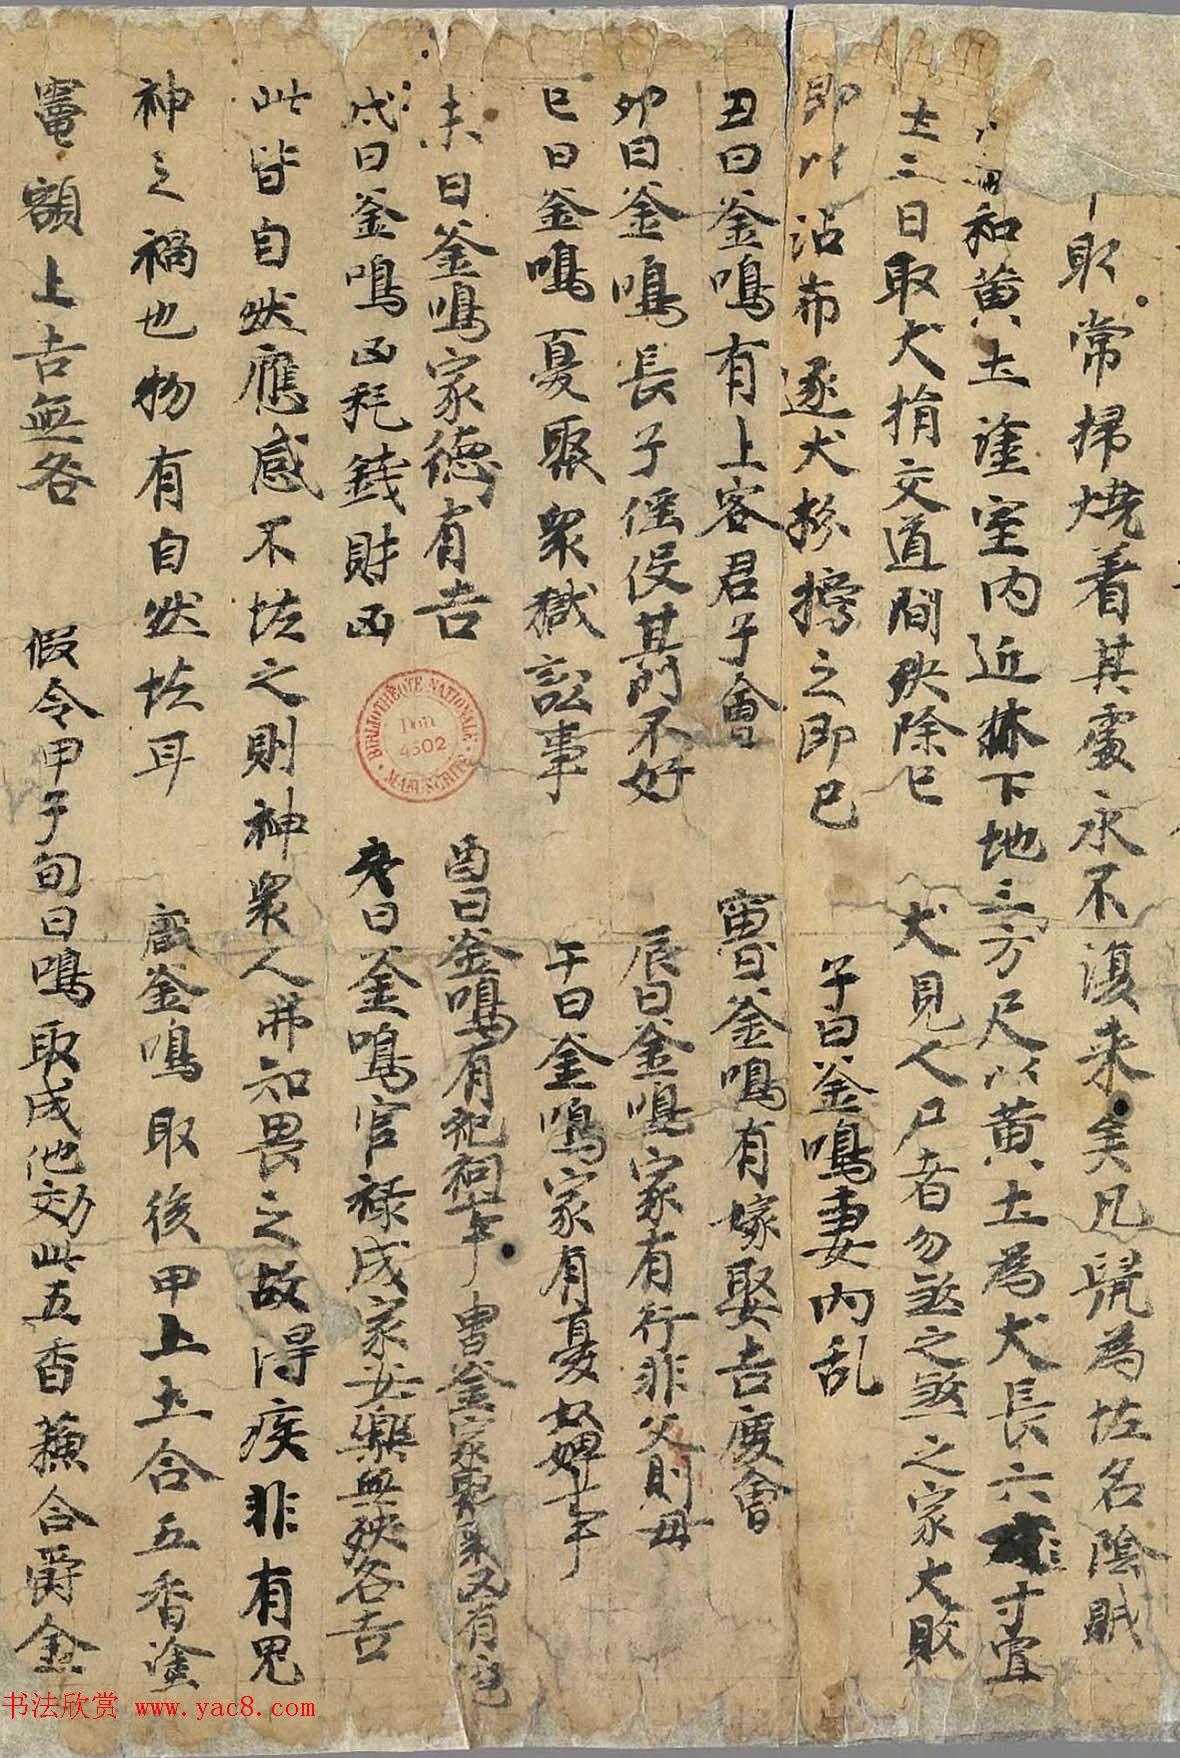 取常掃燒着其處永不復来矣凡髡為怪名陰賊
和黄土塗室内近牀下地三方尺以黄土為犬長六寸置
土三日取犬捐交道間殃除已 犬見人尸者勿煞之煞之家大敗
即以沾布逐犬於撈之即已 子日釜鳴妻内乱
丑日釜鳴有上客君子會 寅日釜鳴有嫁娶吉慶會
卯日釜鳴長子徭役其門不好 辰日釜鳴家有行非父則母
巳日釜鳴憂聚衆獄訟事 午日釜鳴家有憂奴婢吉
未日釜鳴家德有吉 酉日釜鳴有祀祠吉
戌日釜鳴凶耗錢財凶 亥日釜鳴官禄成家安樂無殃咎吉
此皆自然應感不怪之則神衆人弗知畏之故得疾非有鬼
神之禍也物有自然怪耳 厭釜鳴取後甲上土合五香塗
竈額上吉無咎 假令甲子旬日鳴取戌他効此五香蘓合爵金
BIBLIOTHÈQUE NATIONALE
Don
4502
MANUSCRITS
书法欣赏 www.yac8.com